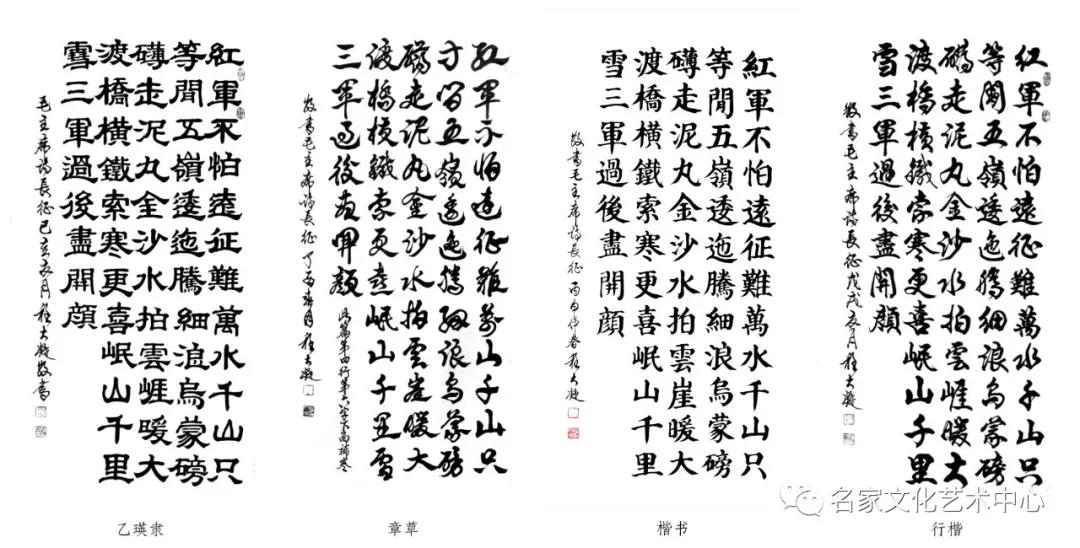 紅軍不怕遠征難萬水千山只
等閒五嶺逶迤騰細浪烏蒙磅
礴走泥丸金沙水拍雲崖暖大
渡橋橫鐵索寒更喜岷山千里
雪三軍過後盡開顏
毛主席詩長征己亥 月程大凝敬書
乙瑛隶
紅軍不怕遠征難萬水千山只
等閒五嶺逶迤騰細浪烏蒙磅
礴走泥丸金沙水拍雲崖暖大
渡橋橫鐵索更喜岷山千里雪
三軍過後盡開顏
此篇第四行第六字下面補寒
敬書毛主席詩長征丁酉春月程大凝
章草
紅軍不怕遠征難萬水千山只
等閒五嶺逶迤騰細浪烏蒙磅
礴走泥丸金沙水拍雲崖暖大
渡橋橫鐵索寒更喜岷山千里
雪三軍過後盡開顏
敬書毛主席詩長征丙申仲春程大凝
楷书
紅軍不怕遠征難萬水千山只
等閒五嶺逶迤騰細浪烏蒙磅
礴走泥丸金沙水拍雲崖暖大
渡橋橫鐵索寒更喜岷山千里
雪三軍過後盡開顏
敬書毛主席詩長征戊戌 月程大凝
行楷
名家文化艺术中心